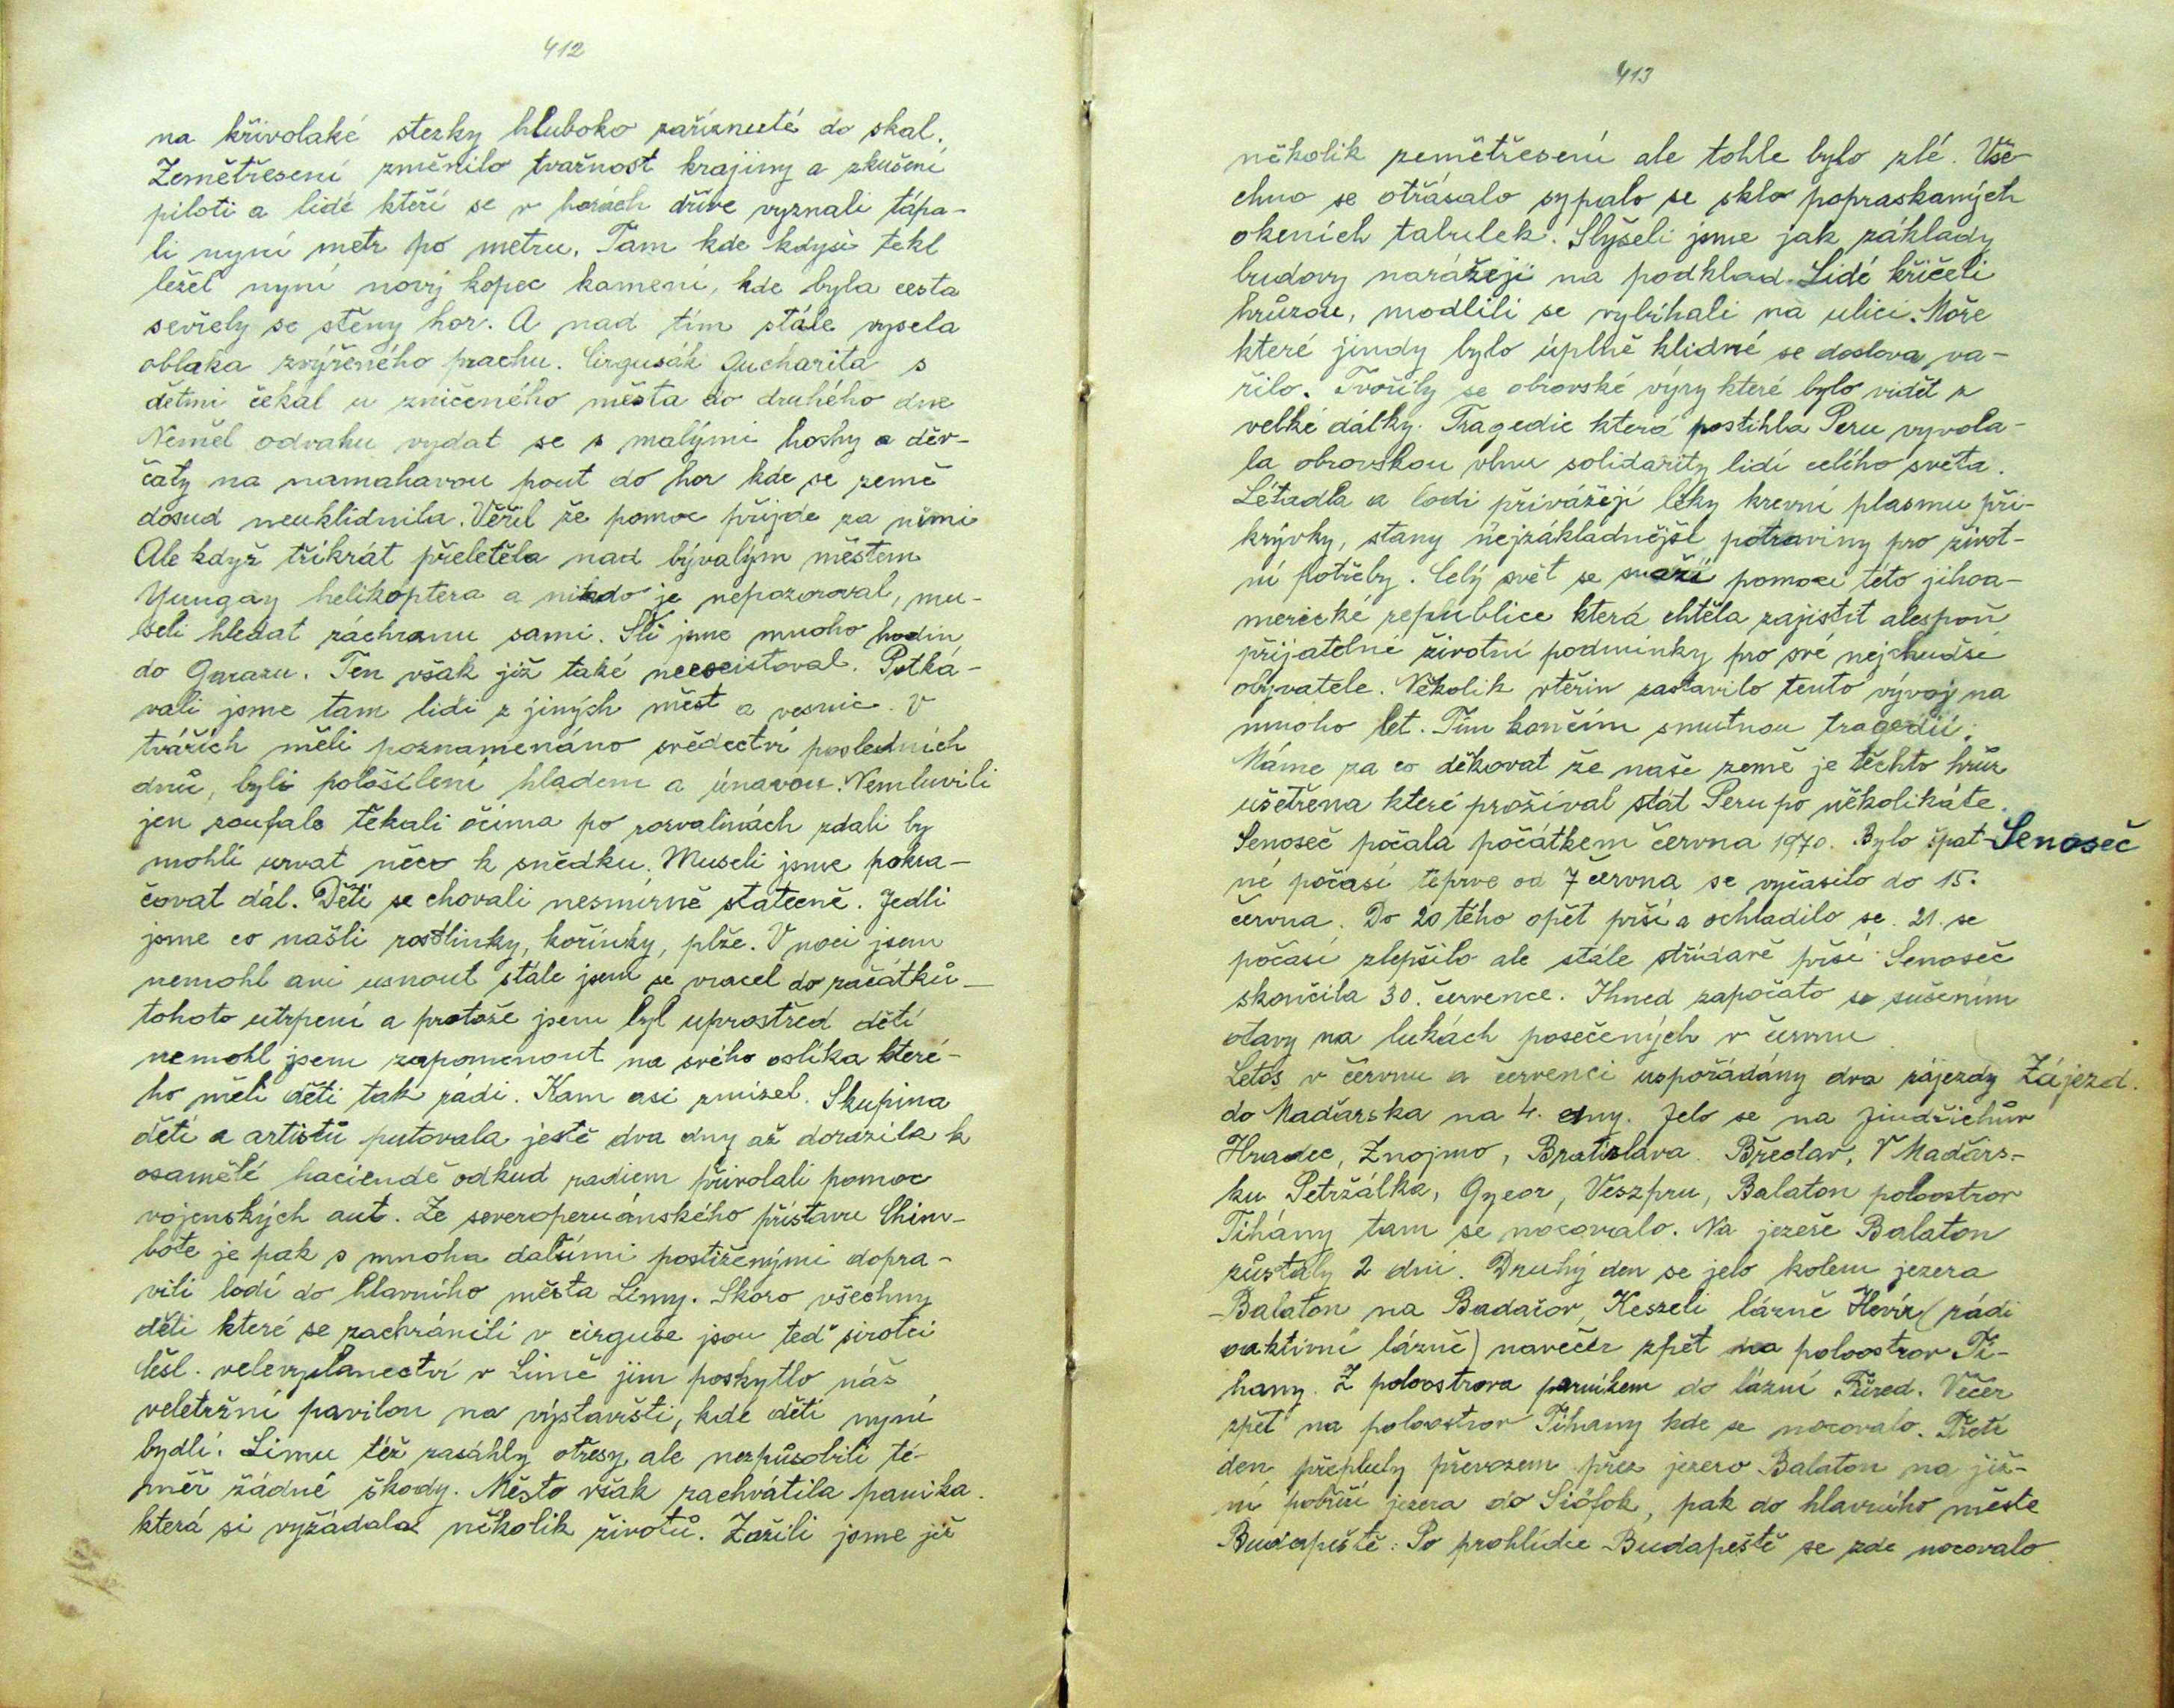 412
na křivolaké stezky hluboko zaříznuté do skal.
Zemětřesení změnilo tvařnost krajiny a zkušení
piloti a lidé kteří se v horách dříve vyznali tápa-
li nyní metr po metru. Tam kde kdysi tekl
ležel nyní nový kopec kamení, kde byla cesta
sevřely se stěny hor. A nad tím stále vysela
oblaka zvýřeného prachu. Cirgusák Gucharita s
dětmi čekal u zničeného města do druhého dne
Neměl odvahu vydat se s malými hochy a děv-
čaty na namahavou pout do hor kde se země
dosud neuklidnila. Věřil že pomoc přijde za nimi
Ale když třikrát přeletěla nad bývalým městem
Yungay helikoptera a nikdo je nepozoroval, mu-
seli hledat záchranu sami. Šli jsme mnoho hodin
do Garazu. Ten však již také neexistoval. Potká-
vali jsme tam lidi z jiných měst a vesnic. V
tvářích měli poznamenáno svědectví posledních
dnů, byli pološílení hladem a únavou. Nemluvili
jen zoufale těkali očima po rozvalinách zdali by
mohli urvat něco k snědku. Museli jsme pokra-
čovat dál. Děti se chovali nesmírně statečně. Jedli
jsme co našli rostlinky, kořínky, plže. V noci jsem
nemohl ani usnout stále jsem se vracel do začátků
tohoto utrpení a protože jsem byl uprostřed dětí
nemohl jsem zapomenout na svého oslíka které-
ho měli děti tak rádi. Kam asi zmizel. Skupina
dětí a artistů putovala jestě dva dny až dorazila k
osamělé haciendě odkud radiem přivolali pomoc
vojenských aut. Ze severoperuánského přístavu Chim-
bote je pak s mnoha dalšími postiženými dopra-
vili lodí do hlavního města Limy. Skoro všechny
děti které se zachránili v cirguse jsou teď sirotci
Česl. velevyslanectví v Limě jim poskytlo náš
veletržní pavilon na výstavišti, kde děti nyní
bydlí. Limu též zasáhly otřesy, ale nezpůsobili té-
měř žádné škody. Město však zachvátila panika.
která si vyžádala několik životů. Zažili jsme již
413
několik zemětřesení ale tohle bylo zlé. Vše-
chno se otřásalo sypalo se sklo popraskaných
okeních tabulek. Slyšeli jsme jak základy
budovy narážejí na podklad. Lidé křičeli
hrůzou, modlili se vybíhali na ulici. Moře
které jindy bylo úplně klidné se doslova va-
řilo. Tvořily se obrovské výry které bylo vidět z
velké dálky. Tragedie která postihla Peru vyvola-
la obrovskou vlnu solidarity lidí celího světa.
Létadla a lodi přivážejí léky krevní plasmu při-
krývky, stany nejzákladnější potraviny pro život-
ní potřeby. Celý svět se snaží pomoci této jihoa-
merické republice která chtěla zajistit alespoň
přijatelné životní podmínky pro své nejchudší
obyvatele. Několik vteřin zastavilo tento vývoj na
mnoho let. Tím končím smutnou tragedii.
Máme za co děkovat že naše země je těchto hrůz
ušetřena které prožíval stát Peru po několikáte.
Senoseč počala počátkem června 1970. Bylo špat- Senoseč
né počasí teprve od 7 června se vyčasilo do 15.
června. Do 20 tého opět prší a ochladilo se. 21. se
počasí zlepšilo ale stále střídavě prší. Senoseč
skončila 30. července. Ihned započato se sušením
otavy na lukách posečených v červnu
Letos v červnu a červenci uspořádány dva zájezdy Zájezd.
do Maďarska na 4. dny. Jelo se na Jindřichův
Hradec, Znojmo, Bratislava. Břeclav, V Maďars-
ku Petržálka, Gyeor, Veszpru, Balaton poloostrov
Tihány tam se nocovalo. Na jezeře Balaton
zůstaly 2 dni. Druhý den se jelo kolem jezera
Balaton na Badačov, Keszeli lázně Hevíz (rádi
oaktivní lázně) navečer zpět na poloostrov Ti-
hany. Z poloostrova parníkem do lázní Füred. Večer
zpět na poloostrov Tihany kde se nocovalo. Třetí
den přepluly převozem přez jezero Balaton na již-
ní pobřeží jezera do Siófok, pak do hlavního měste
Budapeště: Po prohlídce Budapeště se zde nocovalo.